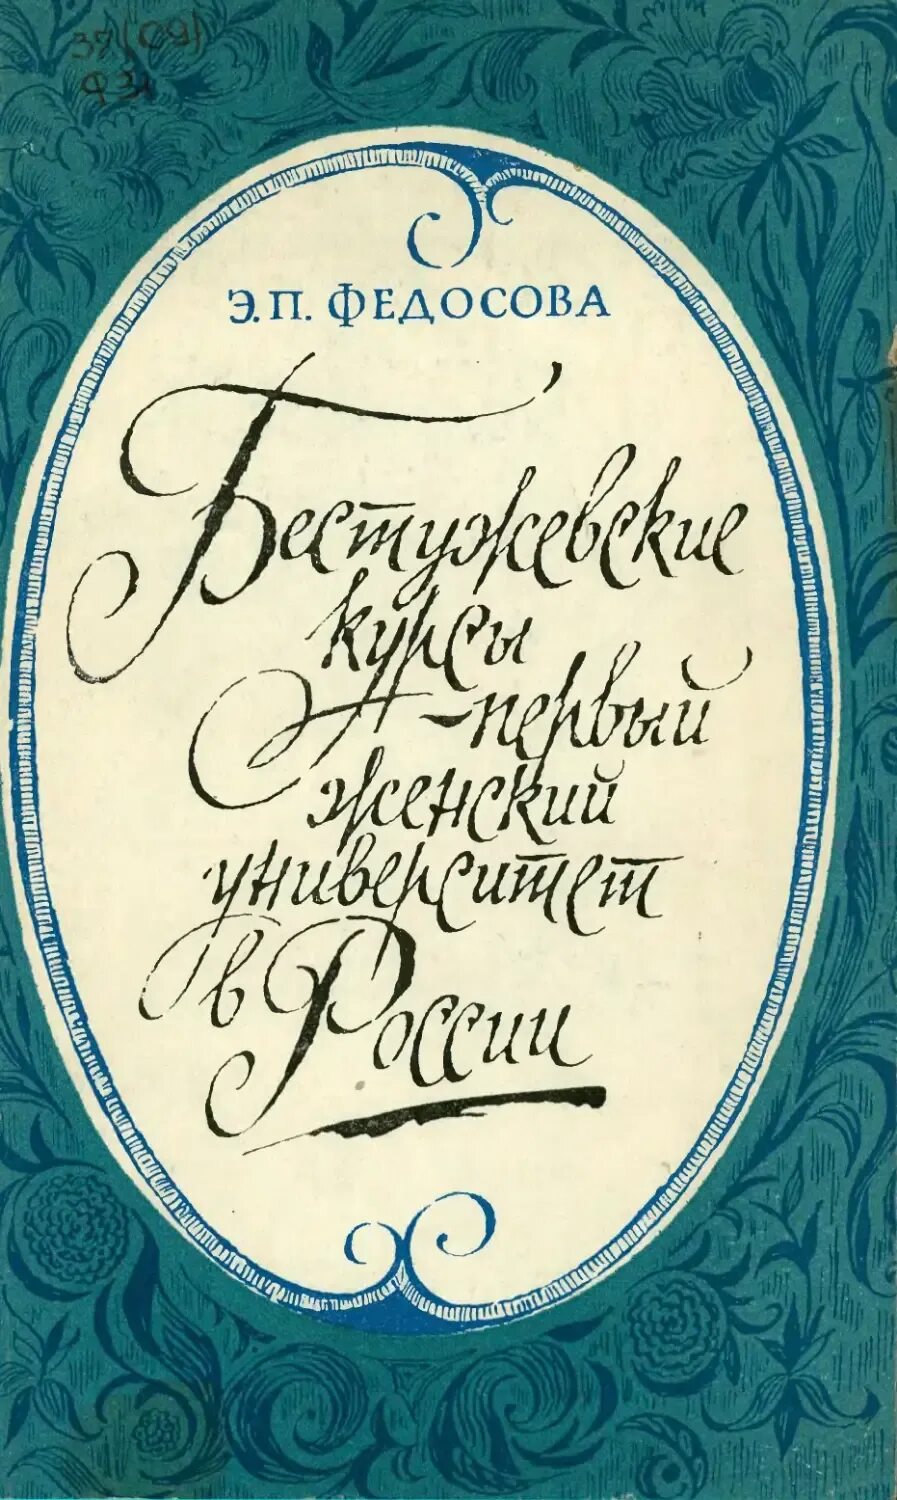 37(09)
Ф31
Э.П. ФЕДОСОВА
Бестужевские
курсы
-первый
женский
университет
в России